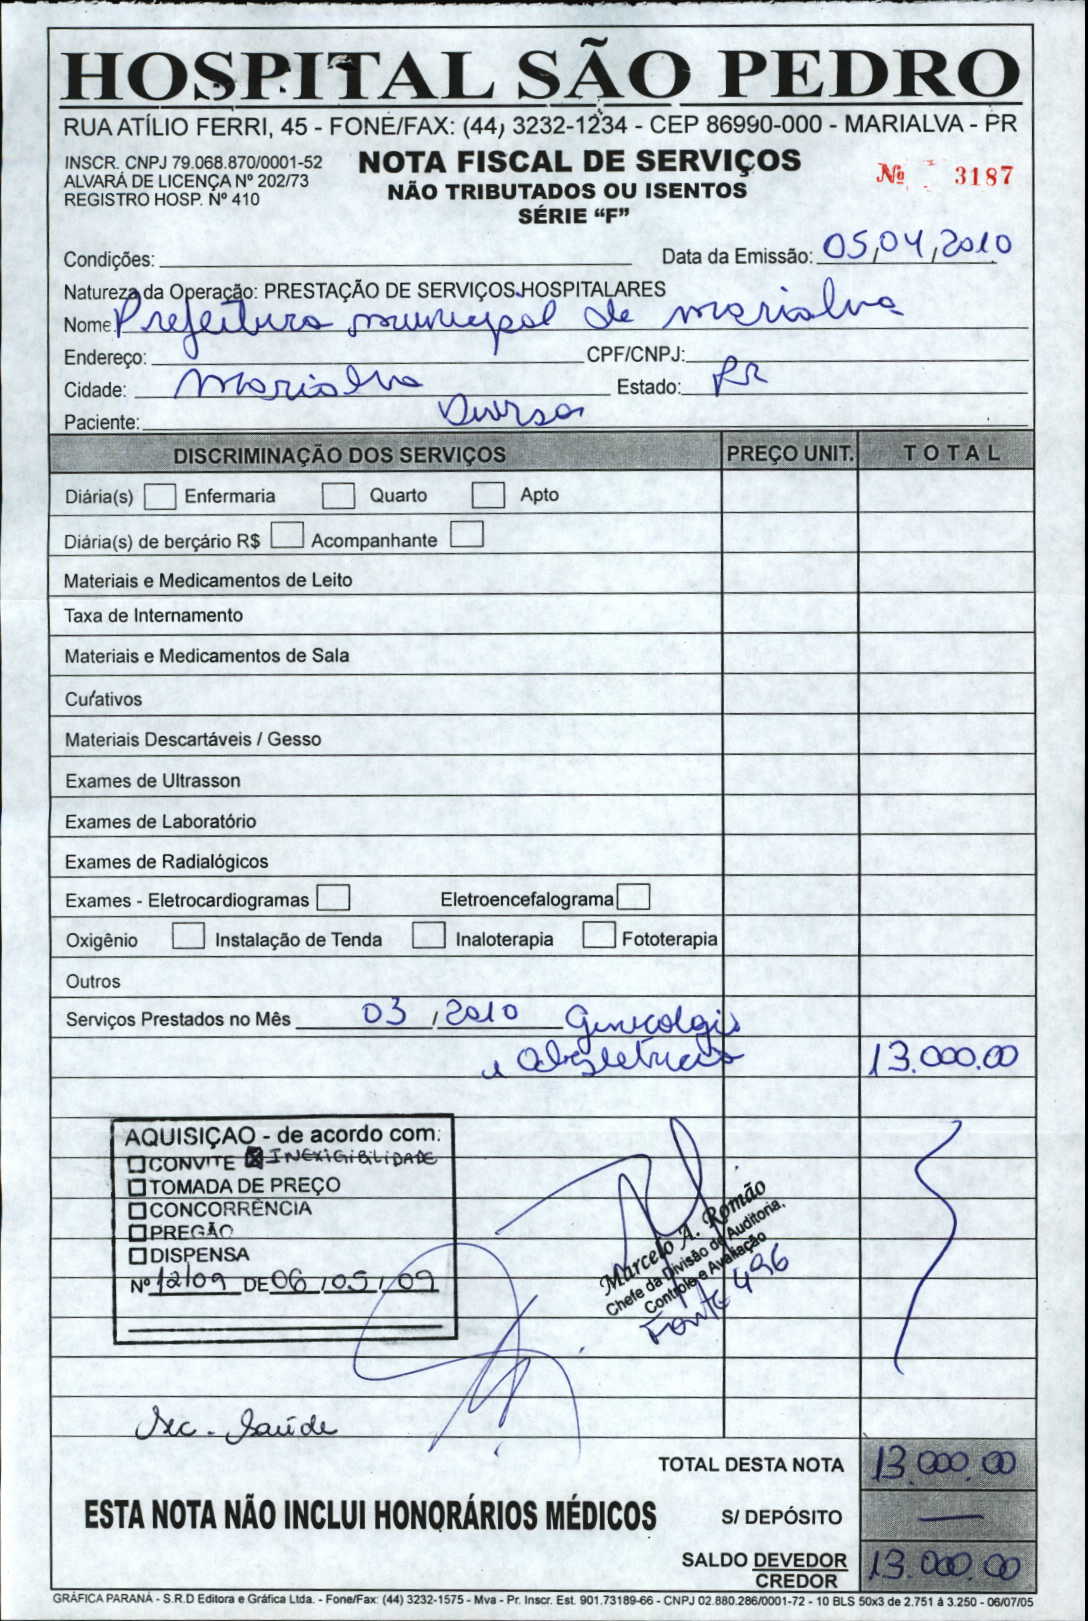 HOSPITAL SÃO PEDRO
RUA ATÍLIO FERRI, 45 - FONE/FAX: (44) 3232-1234 - CEP 86990-000 - MARIALVA - PR
INSCR. CNPJ 79.068.870/0001-52
ALVARÁ DE LICENÇA Nº 202/73
REGISTRO HOSP. Nº 410
NOTA FISCAL DE SERVIÇOS
NÃO TRIBUTADOS OU ISENTOS
SÉRIE “F”
Nº 3187
Condições: Data da Emissão: 05,04,2010
Natureza da Operação: PRESTAÇÃO DE SERVIÇOS HOSPITALARES
Nome Prefeitura municipal de marialva
Endereço: CPF/CNPJ:
Cidade: Marialva Estado: PR
Paciente: Diversos
DISCRIMINAÇÃO DOS SERVIÇOS PREÇO UNIT. TOTAL
Diária(s) Enfermaria Quarto Apto
Diária(s) de berçário R$ Acompanhante
Materiais e Medicamentos de Leito
Taxa de Internamento
Materiais e Medicamentos de Sala
Curativos
Materiais Descartáveis / Gesso
Exames de Ultrasson
Exames de Laboratório
Exames de Radialógicos
Exames - Eletrocardiogramas Eletroencefalograma
Oxigênio Instalação de Tenda Inaloterapia Fototerapia
Outros
Serviços Prestados no Mês 03 / 2010 Ginecologia
e Obstetricia 13.000.00
AQUISIÇAO - de acordo com:
CONVITE INEXIGIBILIDADE
TOMADA DE PREÇO
CONCORRÊNCIA
PREGÃO
DISPENSA
Nº 12/09 DE 06 / 05 / 09
Marcelo A. Romão
Chefe da Divisão de Auditoria,
Controle e Avaliação
FONTE 496
Sec. Saúde
TOTAL DESTA NOTA 13.000.00
ESTA NOTA NÃO INCLUI HONORÁRIOS MÉDICOS
S/ DEPÓSITO —
SALDO DEVEDOR
CREDOR 13.000.00
GRÁFICA PARANÁ - S.R.D Editora e Gráfica Ltda. - Fone/Fax: (44) 3232-1575 - Mva - Pr. Inscr. Est. 901.73189-66 - CNPJ 02.880.286/0001-72 - 10 BLS 50x3 de 2.751 à 3.250 - 06/07/05